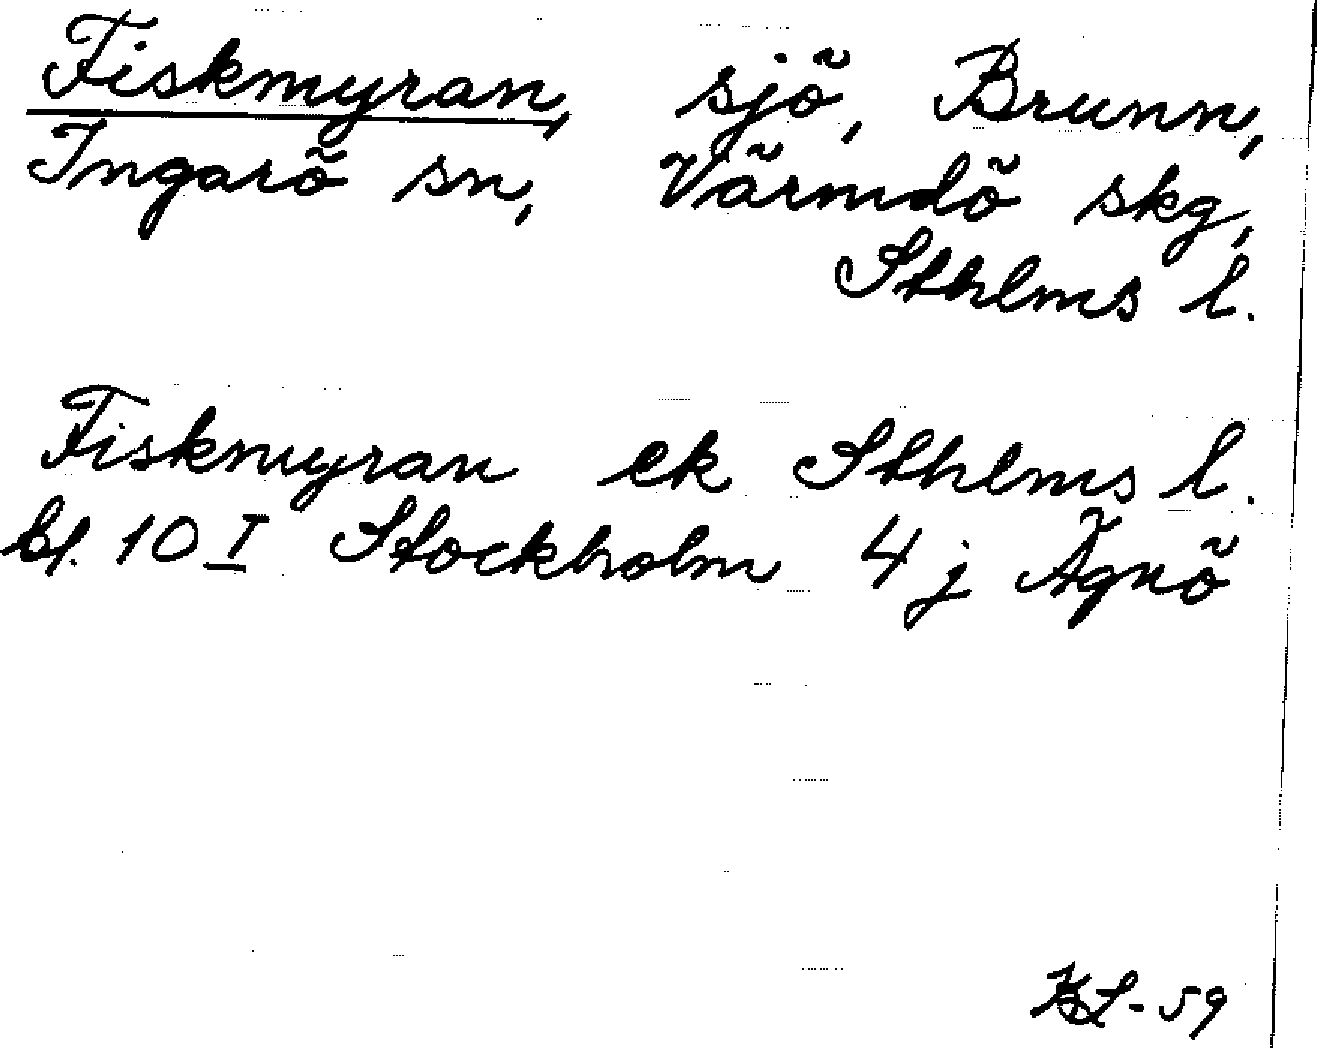 Fiskmyran, sjö, Brunn,
Ingarö sn, Värmdö skg,
Sthlms l.
Fiskmyran ek Sthlms l.
bl. 10 I Stockholm 4 j Ägnö
-59